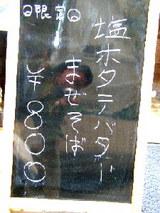 塩ホタテバター
まぜそば
限定
¥800